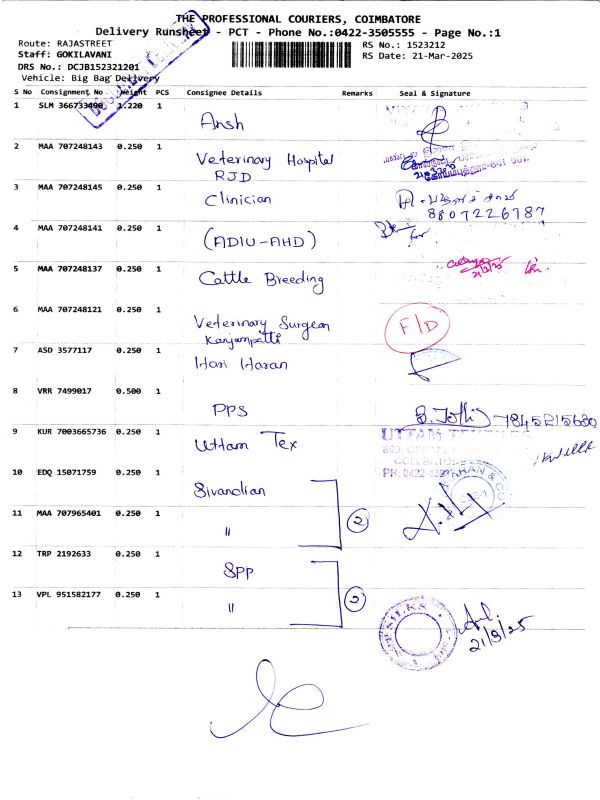 THE PROFESSIONAL COURIERS, COIMBATORE
Delivery Runsheet - PCT - Phone No.:0422-3505555 - Page No.:1
Route: RAJASTREET
RS No.: 1523212
Staff: GOKILAVANI
RS Date: 21-Mar-2025
DRS No.: DCJB152321201
Vehicle: Big Bag Delivery
S No Consignment No Weight PCS Consignee Details Remarks Seal & Signature
1 SLM 366733490 1.220 1 Ansh
2 MAA 707248143 0.250 1 Veterinary Hospital
RJD
3 MAA 707248145 0.250 1 Clinician
8807226787
4 MAA 707248141 0.250 1 (ADIU-AHD)
5 MAA 707248137 0.250 1 Cattle Breeding
21/3/25
6 MAA 707248121 0.250 1 Veterinary Surgeon F/D
Kanjampatti
7 ASD 3577117 0.250 1 Hari Haran
8 VRR 7499017 0.500 1 PPS
7845215680
9 KUR 7003665736 0.250 1 Uttam Tex
UTTAM
10 EDQ 15071759 0.250 1 Sivandian
11 MAA 707965401 0.250 1 " 2
12 TRP 2192633 0.250 1 SPP
13 VPL 951582177 0.250 1 " 2
SILKS
21/3/25